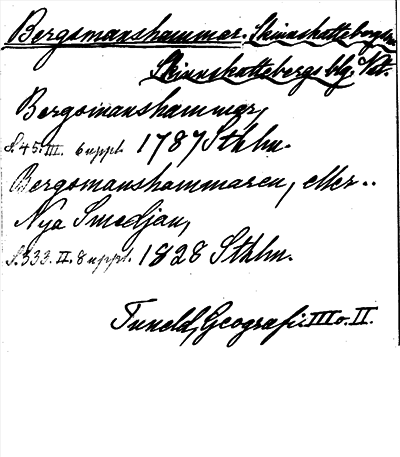 Bergsmanshammar. Skinnskatteberg
Skinnskattebergs blg. Vst.
Bergsmanshammar,
S. 45. III. 6 uppl. 1787 Sthlm.
Bergsmanshammaren, eller..
Nya Smedjan,
S. 533. II. 8 uppl. 1828 Sthlm.
Tuneld, Geografi III o. II.